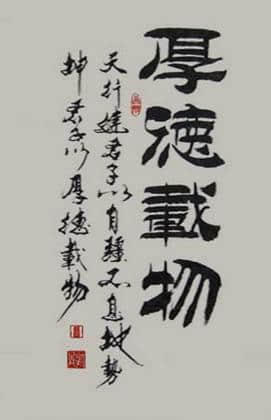 厚德載物
天行健君子以自强不息地勢
坤君子以厚德載物